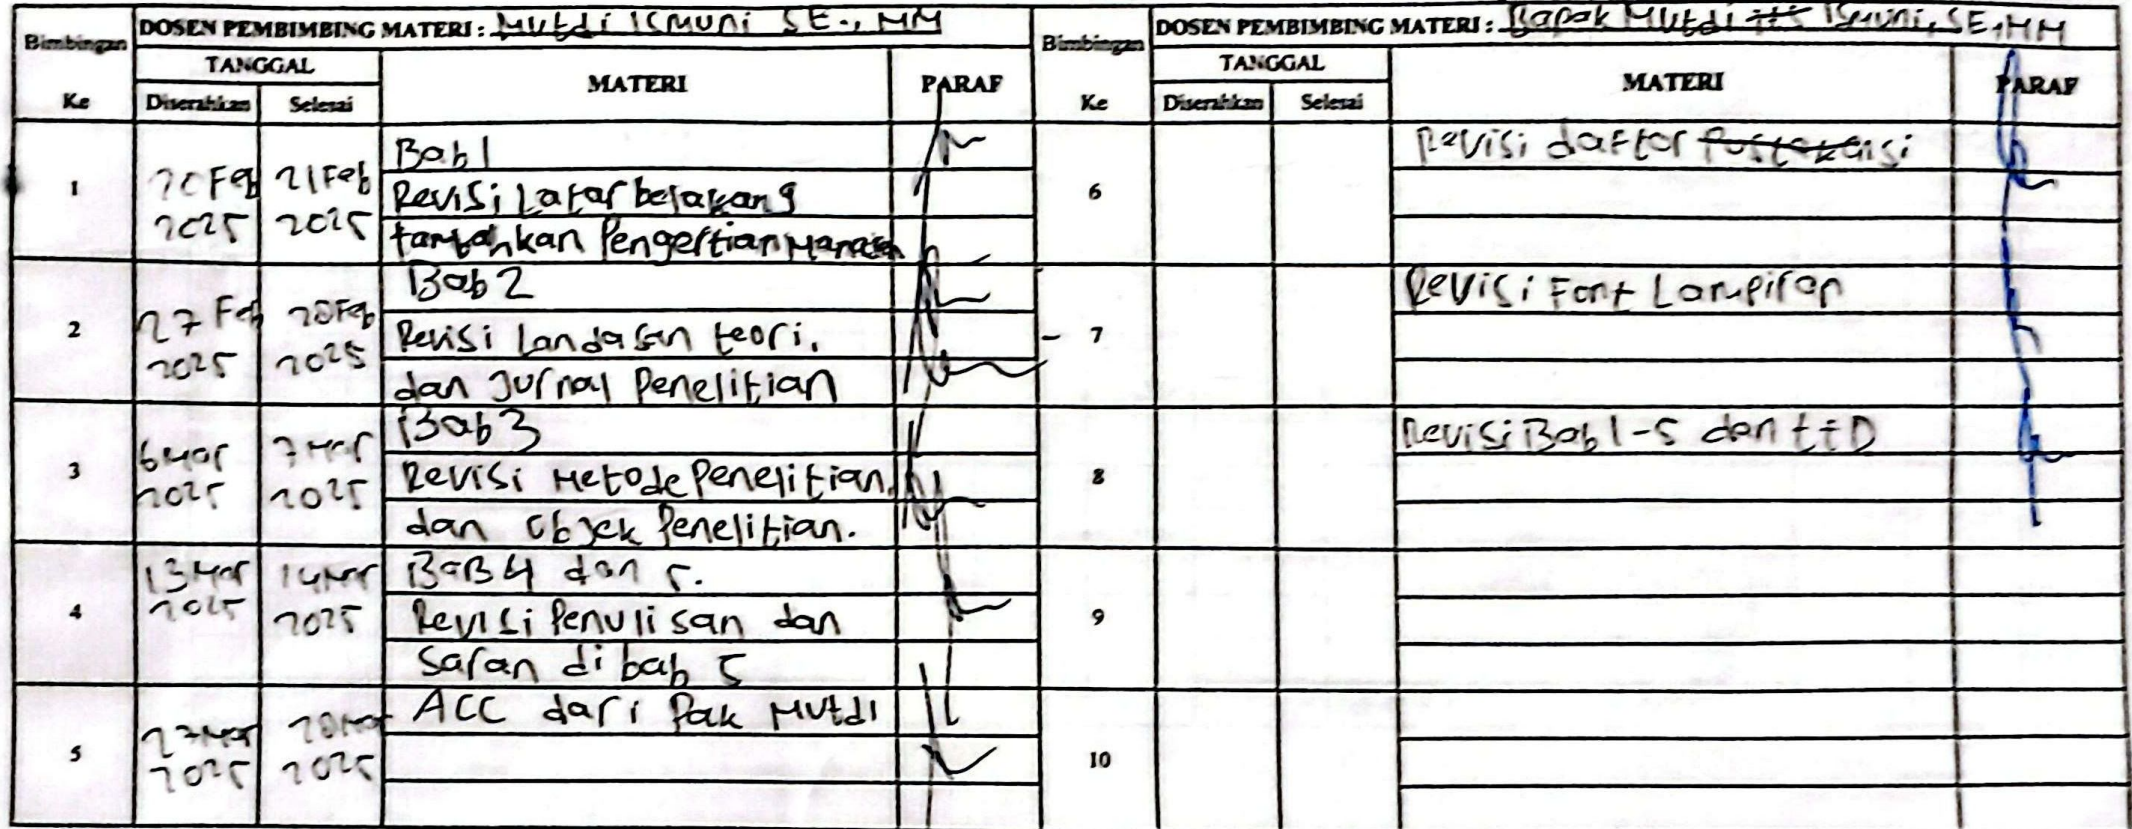 Bimbingan Ke
DOSEN PEMBIMBING MATERI : Mutdi Ismuni SE., MM
TANGGAL
Diserahkan Selesai
MATERI
PARAF
1
20 Feb 2025
21 Feb 2025
Bab 1
Revisi Latar belakang
tambahkan Pengertian
2
27 Feb 2025
28 Feb 2025
Bab 2
Revisi Landasan teori.
dan Jurnal Penelitian
3
6 Mar 2025
7 Mar 2025
Bab 3
Revisi Metode Penelitian.
dan Objek Penelitian.
4
13 Mar 2025
14 Mar 2025
BaB 4 dan 5.
Revisi Penulisan dan
Saran di bab 5
5
27 Mar 2025
28 Mar 2025
ACC dari Pak Mutdi
Bimbingan Ke
DOSEN PEMBIMBING MATERI : Bapak Mutdi Ismuni, SE, MM
TANGGAL
Diserahkan Selesai
MATERI
PARAF
6
Revisi daftar
7
Revisi Font Lampiran
8
Revisi Bab 1-5 dan ttD
9
10